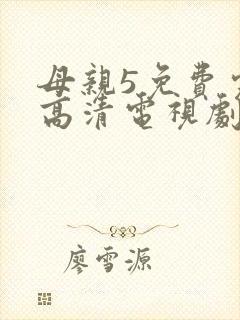 母親5免費
高清電視劇
廖雪源